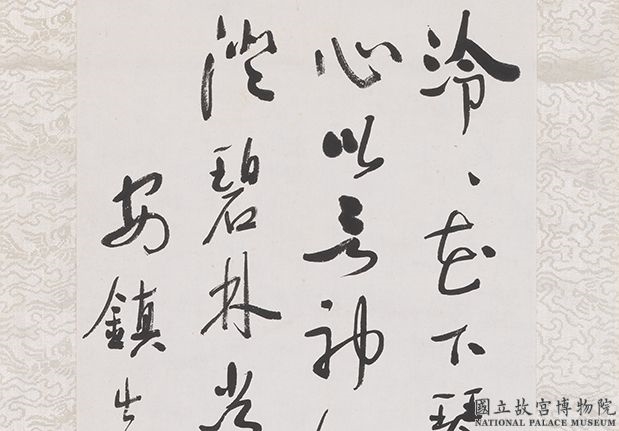 泠、花下琴
心以言神
澄碧林
鎮
國立故宮博物院
NATIONAL PALACE MUSEUM